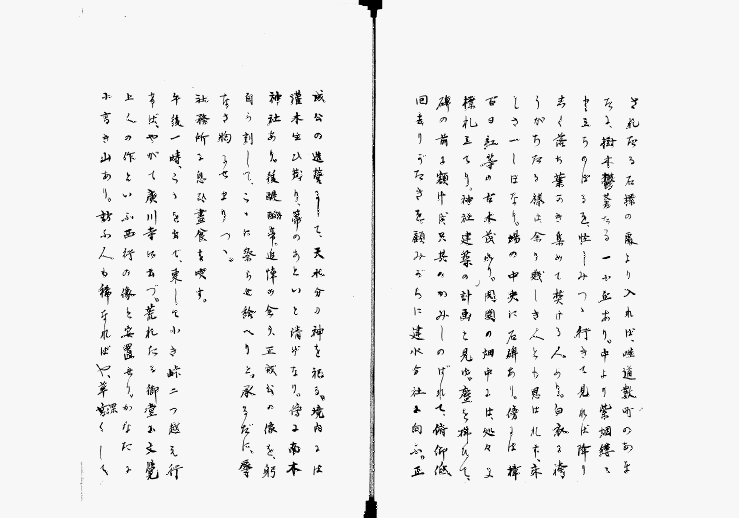 されたる石標の處より入れば、畦道數町のあな
たに、樹木鬱蒼たる一小丘あり。中より紫烟縷々
と立ちのぼるを、怪しみつゝ行きて見れば、降り
しく落ち葉かき集めて焚ける人あり。白衣に袴
うがちたる様は余り賎しき人とも思はれず、床
しさ一しほなり。塲の中央に石碑あり。傍には榊
百日紅等の古木茂れり。周圍の畑中には、処々に
標札立てり。神社建築の計画と見ゆ。塵を拂ひて、
碑の前に額けば只其のかみしのばれて、俯仰低
回去りがたきを、顧みがちに建水分社に向ふ。正
成公の造營にして、天水分の神を祀る。境内には
灌木生ひ茂り、苔のあといと清げなり。傍に南木
神社あり。後醍醐帝、追悼の余り、正成公の像を、躬
自ら刻して、こゝに祭らせ給へりと。承るだに、辱
なさ胸にせまりつゝ。
社務所に息ひ晝食を喫す。
午後一時、こゝを出で、東して小き峠二つ越え行
けば、やがて廣川寺に出づ。荒れたる御堂に文覺
上人の作といふ西行の像を安置せり。かなたに
小高き山あり。訪ふ人も稀なればや、草深くして